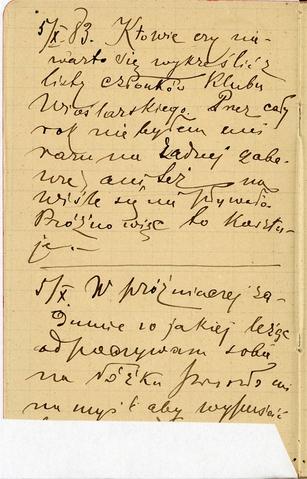 5/X 83. Któwie czy nie
warto się wykreślić z
listy członków Klubu
Wioślarskiego. Przez cały
rok nie byłem ani
razu na żadnej gabe
też na
Wiśle się nie
Próżno więc to kosztu-
je. –
5/X W próżniaczej za-
dumie w jakiej leżąc
odpoczywam sobie
na łóżku przyszło mi
na myśl aby wypuścić